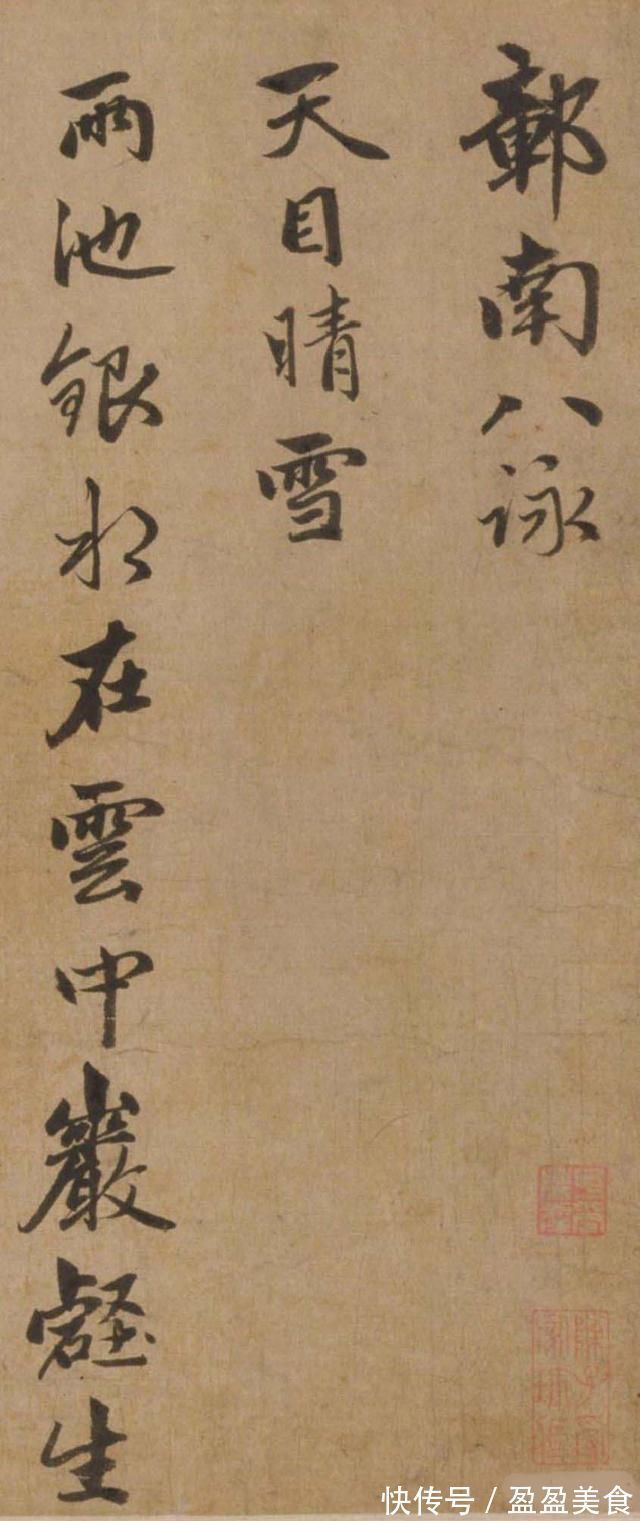 鄣南八詠
天目晴雪
兩池銀水在雲中巖壑生
快传号 / 盈盈美食